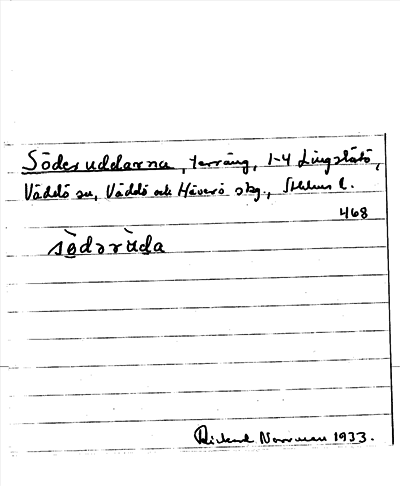 Söderuddarna, terräng, 1-4 Lingslätö,
Väddö sn, Väddö och Häverö skg., Sthlms l.
468
sö̀dərùda
Rickard Norrman 1933.